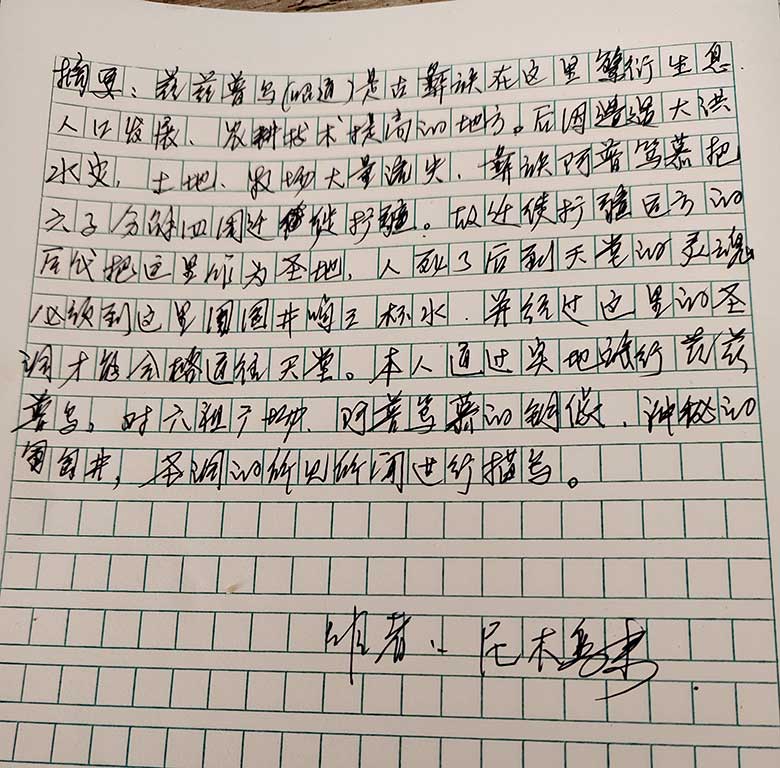 摘要：兹兹普乌(昭通)是古彝族在这里繁衍生息.
人口发展、农耕技术提高的地方。后因遭遇大洪
水灾，土地、牧场大量流失，彝族阿普笃慕把
六子分的四周迁徙扩疆。故迁徙扩疆远方的
后代把这里作为圣地，人死了后到天堂的灵魂
必须到这里葡萄井喝三杯水，并经过这里的圣
洞才能合格通往天堂。本人通过实地旅行兹兹
普乌，对六祖广场、阿普笃慕的铜像、神秘的
葡萄井，圣洞的所见所闻进行描写。
作者：木乌